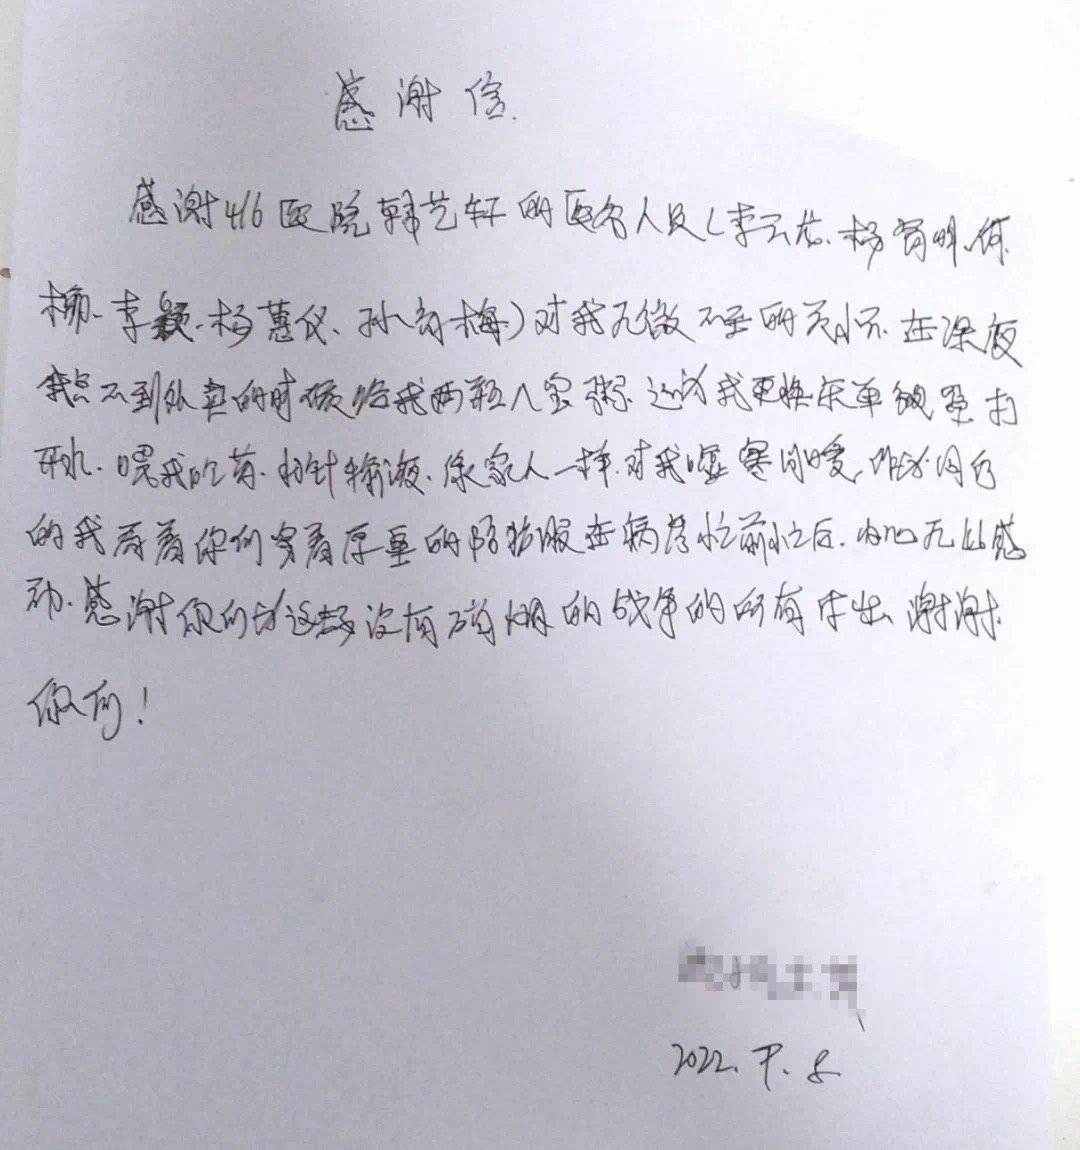 感谢信
感谢416医院韩艺轩的医务人员(李云龙、杨育明、何
柳、李颖、杨蕙仪、孙育梅)对我无微不至的关怀在深夜
我点不到外卖的时候给我两瓶八宝粥.还为我更换床单被罩打
开水.喂我吃药.扎针输液.像家人一样.对我嘘寒问暖,
的我看着你们穿着厚重的防护服在病房忙前忙后.内心无比感
动.感谢你们为这场没有硝烟的战争的所有付出 谢谢
你们!
2022. 9. 8